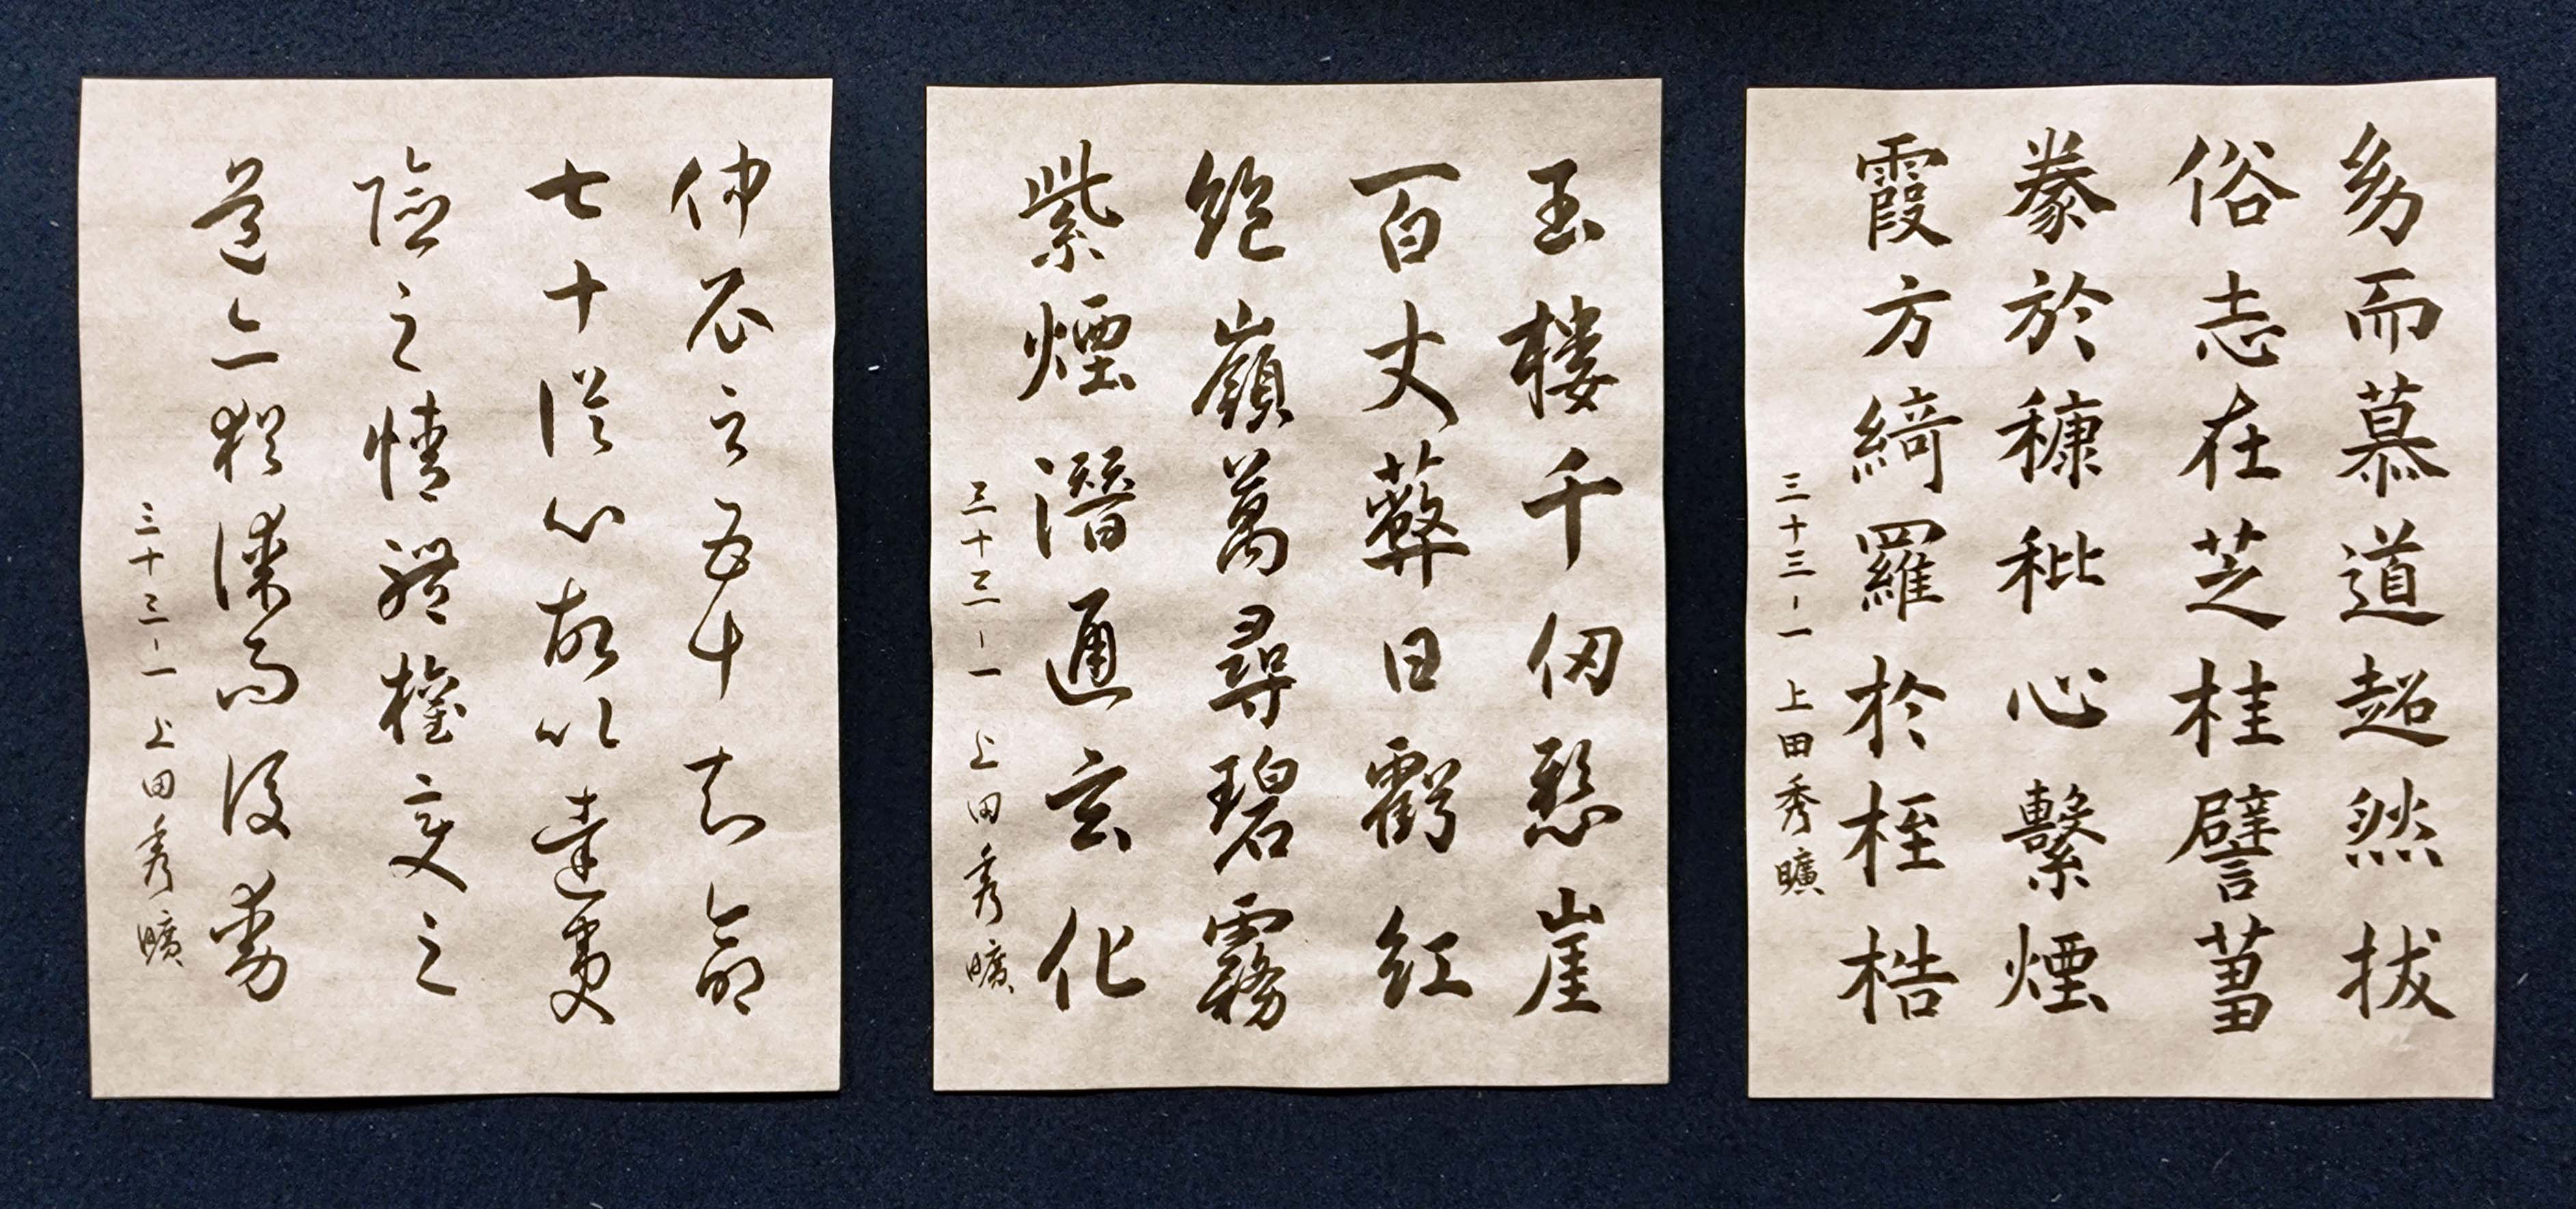 幼而慕道超然拔
俗志在芝桂譬芻
豢於穅秕心繫煙
霞方綺羅於桎梏
三十三-一 上田秀曠
玉楼千仞懸崖
百丈蔽日虧紅
絶嶺萬尋碧霧
紫煙潛通玄化
三十三-一 上田秀曠
仲尼云五十知命
七十從心故以達夷
險之情體權變之
道亦猶謀而後動
三十三-一 上田秀曠